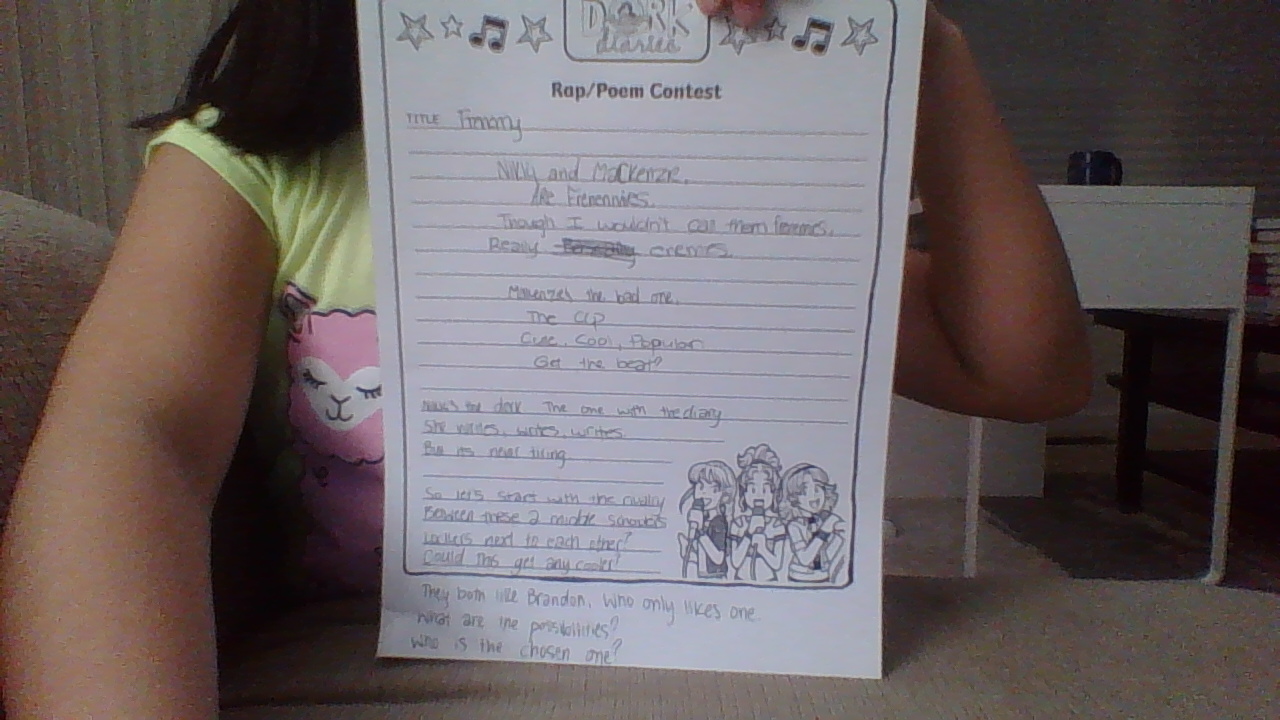 DORK
diaries
Rap/Poem Contest
TITLE
Nikki and Mackenzie.
Are Frenemies.
Though I wouldn't call them femmes.
Really enemies.
Mackenzie's the bad one.
The CCP
Cute, Cool, Popular
Get the beat?
Nikki's the dork The one with the diary
She writes, writes, writes.
But its never tiring
So lets start with the rivalry
Between these 2 middle schoolers
Lockers next to each other?
Could this get any cooler?
They both like Brandon, who only likes one.
What are the possibilities?
Who is the chosen one?